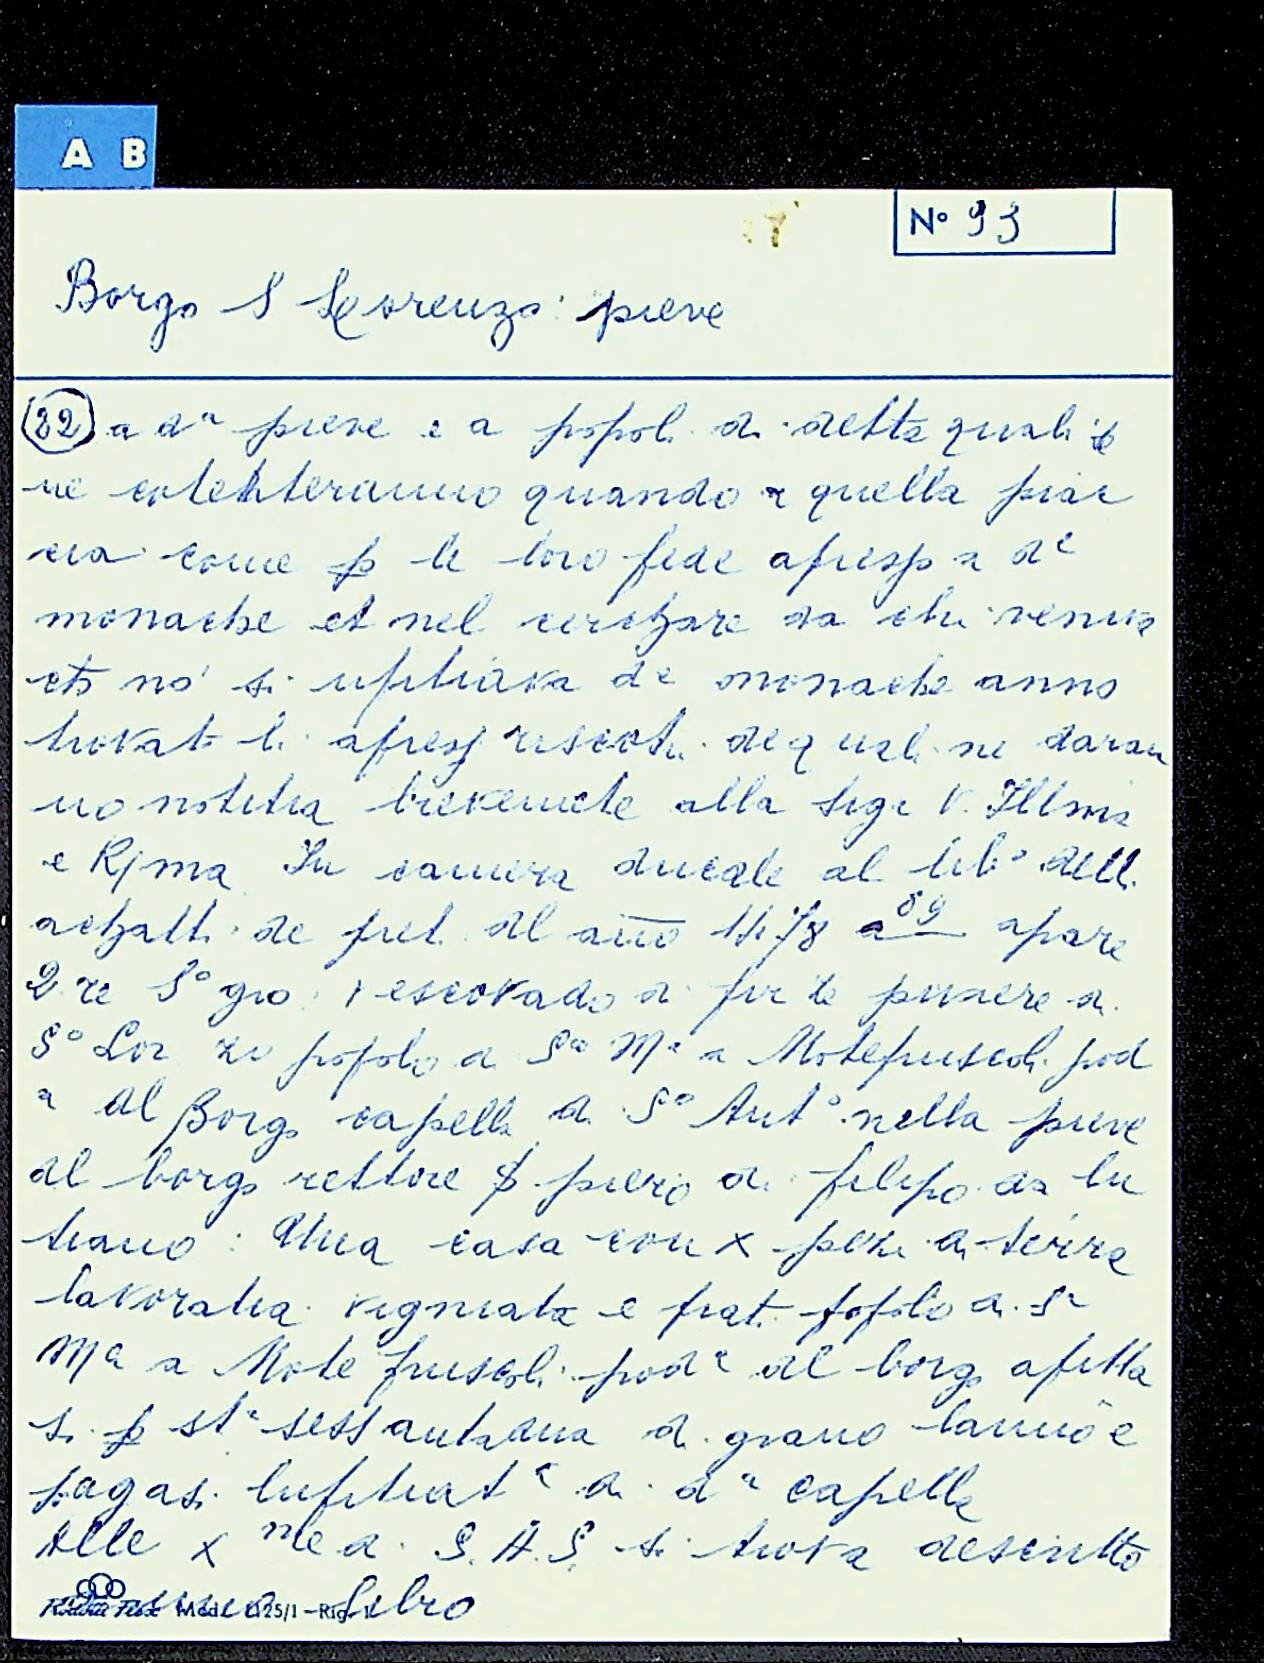 A B
N° 93
Borgo S Lorenzo: pieve
22 a da pieve e a popoli di detta quali
ne quando a quella piac
era come p le loro fede apresso a de
monache et nel cerchare da chi veniva
no si de monache anno
trovato li apresso riscoti de quali ne daran
no notitia brevemete alla Sigr V. Illma
e R/ma In camera ducale al lib° delli
achatti de pret del año a 89 apare
S° gio vescovado di piviere di
S° Lor zo popolo di Sa Ma a Motepuscoli pod
a del Borgo capella di S° Ant° nella pieve
del borgo rettore piero di filipo da lu
tiano: Una casa con x pezi di terra
lavoratia vigniata e prat. popolo di Sa
Ma a Mote puscoli poda del borgo afitta
si p sta sessantadua di grano lanno e
pagasi di da capella
Alle x me di S.A.S. si trova descritto
Libro
Mod. 125/1 - Rig. 1